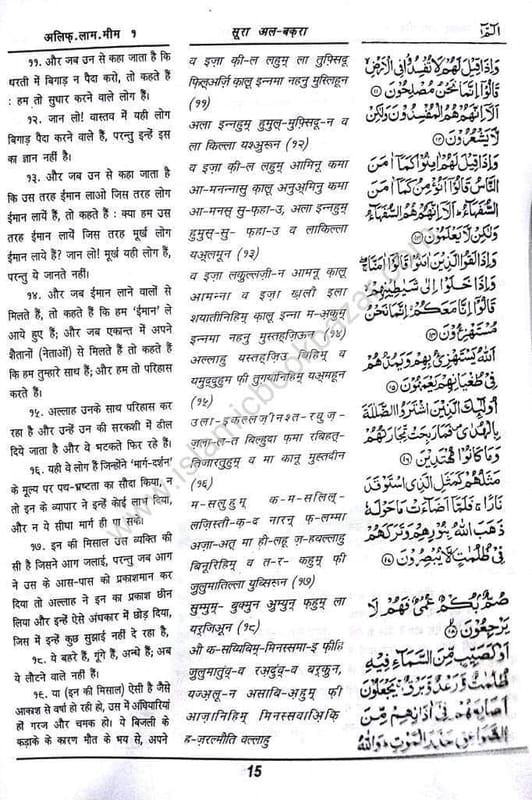 अलिफ़.लाम.मीम १
सूरा अल-बक़रा
११. और जब उन से कहा जाता है कि
धरती में बिगाड़ न पैदा करो, तो कहते हैं
: हम तो सुधार करने वाले लोग हैं।
१२. जान लो! वास्तव में यही लोग
बिगाड़ पैदा करने वाले हैं, परन्तु इन्हें इस
का ज्ञान नहीं है।
१३. और जब उन से कहा जाता है
कि उस तरह ईमान लाओ जिस तरह लोग
ईमान लाये हैं, तो कहते हैं : क्या हम उस
तरह ईमान लायें जिस तरह मूर्ख लोग
ईमान लाये हैं? जान लो! मूर्ख यही लोग हैं,
परन्तु ये जानते नहीं।
१४. और जब ईमान लाने वालों से
मिलते हैं, तो कहते हैं कि हम 'ईमान' ले
आये हुए हैं; और जब एकान्त में अपने
शैतानों (नेताओं) से मिलते हैं तो कहते हैं
कि हम तुम्हारे साथ हैं; और हम तो परिहास
करते हैं।
१५. अल्लाह उनके साथ परिहास कर
रहा है और उन्हें उन की सरकशी में ढील
दिये जाता है और वे भटकते फिर रहे हैं।
१६. यही वे लोग हैं जिन्होंने 'मार्ग-दर्शन'
के मूल्य पर पथ-भ्रष्टता का सौदा किया, न
तो इन के व्यापार ने इन्हें कोई लाभ दिया,
और न ये सीधा मार्ग ही पा सके।
१७. इन की मिसाल उस व्यक्ति की
सी है जिसने आग जलाई, परन्तु जब आग
ने उस के आस-पास को प्रकाशमान कर
दिया तो अल्लाह ने इन का प्रकाश छीन
लिया और इन्हें ऐसे अंधकार में छोड़ दिया,
जिस में इन्हें कुछ सुझाई नहीं दे रहा है,
१८. ये बहरे हैं, गूंगे हैं, अन्धे हैं; अब
ये लौटने वाले नहीं हैं।
१९. या (इन की मिसाल) ऐसी है जैसे
आकाश से वर्षा हो रही हो, उस में अंधियारियां
हों गरज और चमक हो। ये बिजली के
कड़ाके के कारण मौत के भय से, अपने
व इज़ा क़ी-ल लहुम् ला तुफ़्सिदू
फ़िल्अर्ज़ि क़ालू इन्नमा नहनु मुस्लिहून
(११)
अला इन्नहुम् हुमुल्-मुफ़्सिदू-न व
ला किल्ला यश्अुरून (१२)
व इज़ा क़ी-ल लहुम् आमिनू कमा
आ-मनन्नासु क़ालू अनुअ्मिनु कमा
आ-मनस् सु-फ़हा-उ, अला इन्नहुम्
हुमुस्-सु- फ़-हा-उ व लाकिल्ला
यअ्लमून (१३)
व इज़ा लक़ुल्लज़ी-न आमनू क़ालू
आमन्ना व इज़ा ख़लौ इला
शयातीनिहिम् क़ालू इन्ना म-अकुम्
इन्नमा नहनु मुस्तह्ज़िऊन (१४)
अल्लाहु यस्तह्ज़िउ बिहिम् व
यमुद्दुहुम फ़ी तुग़यानिहिम् यअ्महून
(१५)
उला-इकल्लज़ीनश्त-रवुज़्-
ज़ला-ल-त बिल्हुदा फ़मा रबिहत्-
तिजारतुहुम् व मा कानू मुह्तदीन
(१६)
म-सलुहुम् क-म-सलिल्-
लज़िस्तौ-क़-द नारन् फ़-लम्मा
अज़ा-अत् मा हौ-लहू ज़-हबल्लाहु
बिनूरिहिम् व त-र-कहुम् फ़ी
ज़ुलुमातिल्ला युब्सिरून (१७)
सुम्मुम्- बुक्मुन् अुम्युन् फ़हुम् ला
यर्जिअून (१८)
औ क-सय्यिबिम्-मिनस्समा-इ फ़ीहि
ज़ुलुमातुंव्-व रअ्दुंव्-व बर्क़ुन्,
यज्अ़लू-न असाबि-अ़हुम् फ़ी
आज़ानिहिम् मिनस्सवाअि़क़ि
ह-ज़रल्मौति वल्लाहु
وَإِذَا قِيلَ لَهُمْ لَا تُفْسِدُوا فِي الْأَرْضِ
قَالُوا إِنَّمَا نَحْنُ مُصْلِحُونَ ⑪
أَلَا إِنَّهُمْ هُمُ الْمُفْسِدُونَ وَلَٰكِنْ
لَا يَشْعُرُونَ ⑫
وَإِذَا قِيلَ لَهُمْ آمِنُوا كَمَا آمَنَ
النَّاسُ قَالُوا أَنُؤْمِنُ كَمَا آمَنَ
السُّفَهَاءُ أَلَا إِنَّهُمْ هُمُ السُّفَهَاءُ
وَلَٰكِنْ لَا يَعْلَمُونَ ⑬
وَإِذَا لَقُوا الَّذِينَ آمَنُوا قَالُوا آمَنَّا
وَإِذَا خَلَوْا إِلَىٰ شَيَاطِينِهِمْ
قَالُوا إِنَّا مَعَكُمْ إِنَّمَا نَحْنُ
مُسْتَهْزِئُونَ ⑭
اللَّهُ يَسْتَهْزِئُ بِهِمْ وَيَمُدُّهُمْ
فِي طُغْيَانِهِمْ يَعْمَهُونَ ⑮
أُولَٰئِكَ الَّذِينَ اشْتَرَوُا الضَّلَالَةَ
بِالْهُدَىٰ فَمَا رَبِحَتْ تِجَارَتُهُمْ
وَمَا كَانُوا مُهْتَدِينَ ⑯
مَثَلُهُمْ كَمَثَلِ الَّذِي اسْتَوْقَدَ
نَارًا فَلَمَّا أَضَاءَتْ مَا حَوْلَهُ
ذَهَبَ اللَّهُ بِنُورِهِمْ وَتَرَكَهُمْ
فِي ظُلُمَاتٍ لَا يُبْصِرُونَ ⑰
صُمٌّ بُكْمٌ عُمْيٌ فَهُمْ لَا
يَرْجِعُونَ ⑱
أَوْ كَصَيِّبٍ مِنَ السَّمَاءِ فِيهِ
ظُلُمَاتٌ وَرَعْدٌ وَبَرْقٌ يَجْعَلُونَ
أَصَابِعَهُمْ فِي آذَانِهِمْ مِنَ
الصَّوَاعِقِ حَذَرَ الْمَوْتِ وَاللَّهُ
15
www.islamicbookbazar.com